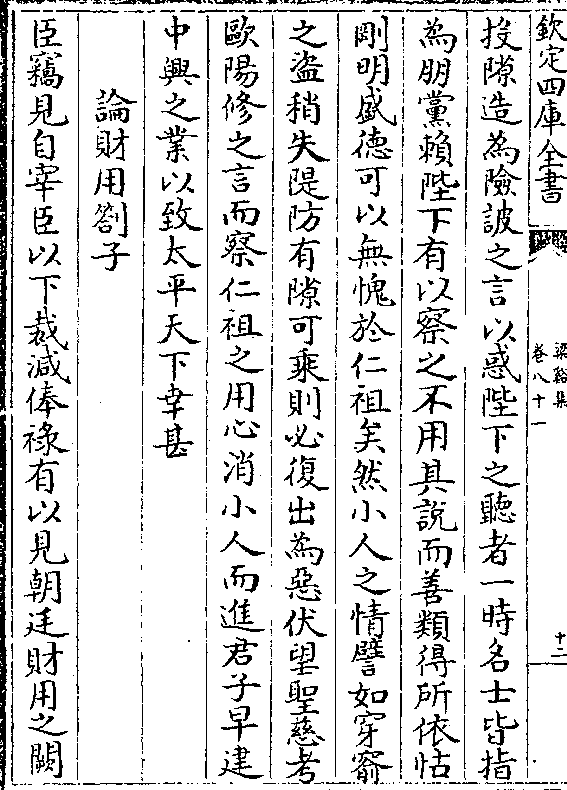 欽定四庫全書
梁谿集
卷八十一
十二
投隙造為險詖之言以惑陛下之聽者一時名士皆指
為朋黨賴陛下有以察之不用其說而善類得所依怙
剛明盛德可以無愧於仁祖矣然小人之情譬如穿窬
之盜稍失隄防有隙可乘則必復出為惡伏望聖慈考
歐陽修之言而察仁祖之用心消小人而進君子早建
中興之業以致太平天下幸甚
論財用劄子
臣竊見自宰臣以下裁減俸祿有以見朝廷財用之闕